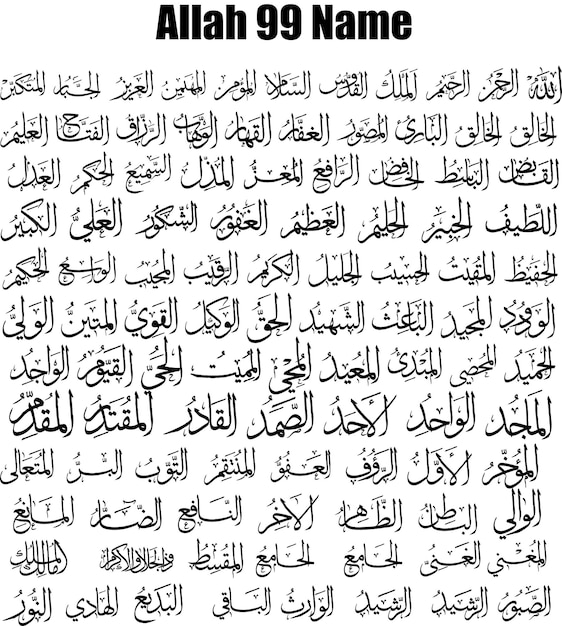 Allah 99 Name
الله الرحمن الرحيم الملك القدوس السلام المؤمن المهيمن العزيز الجبار المتكبر
الخالق الخالق البارئ المصور الغفار القهار الوهاب الرزاق الفتاح العليم
القابض الباسط الخافض الرافع المعز المذل السميع الحكم العدل
اللطيف الخبير الحليم العظيم الغفور الشكور العلي الكبير
الحفيظ المقيت الحسيب الجليل الكريم الرقيب المجيب الواسع الحكيم
الودود المجيد الباعث الشهيد الحق الوكيل القوي المتين الولي
الحميد المحصي المبدئ المعيد المحيي المميت الحي القيوم الواجد
الماجد الواحد الأحد الصمد القادر المقتدر المقدم
المؤخر الأول الرؤوف العفو المنتقم التواب البر المتعالي
الوالي الباطن الظاهر الآخر النافع الضار المانع
المغني الغني الجامع الجامع المقسط ذو الجلال والإكرام مالك الملك
الصبور الرشيد الرشيد الوارث الباقي البديع الهادي النور